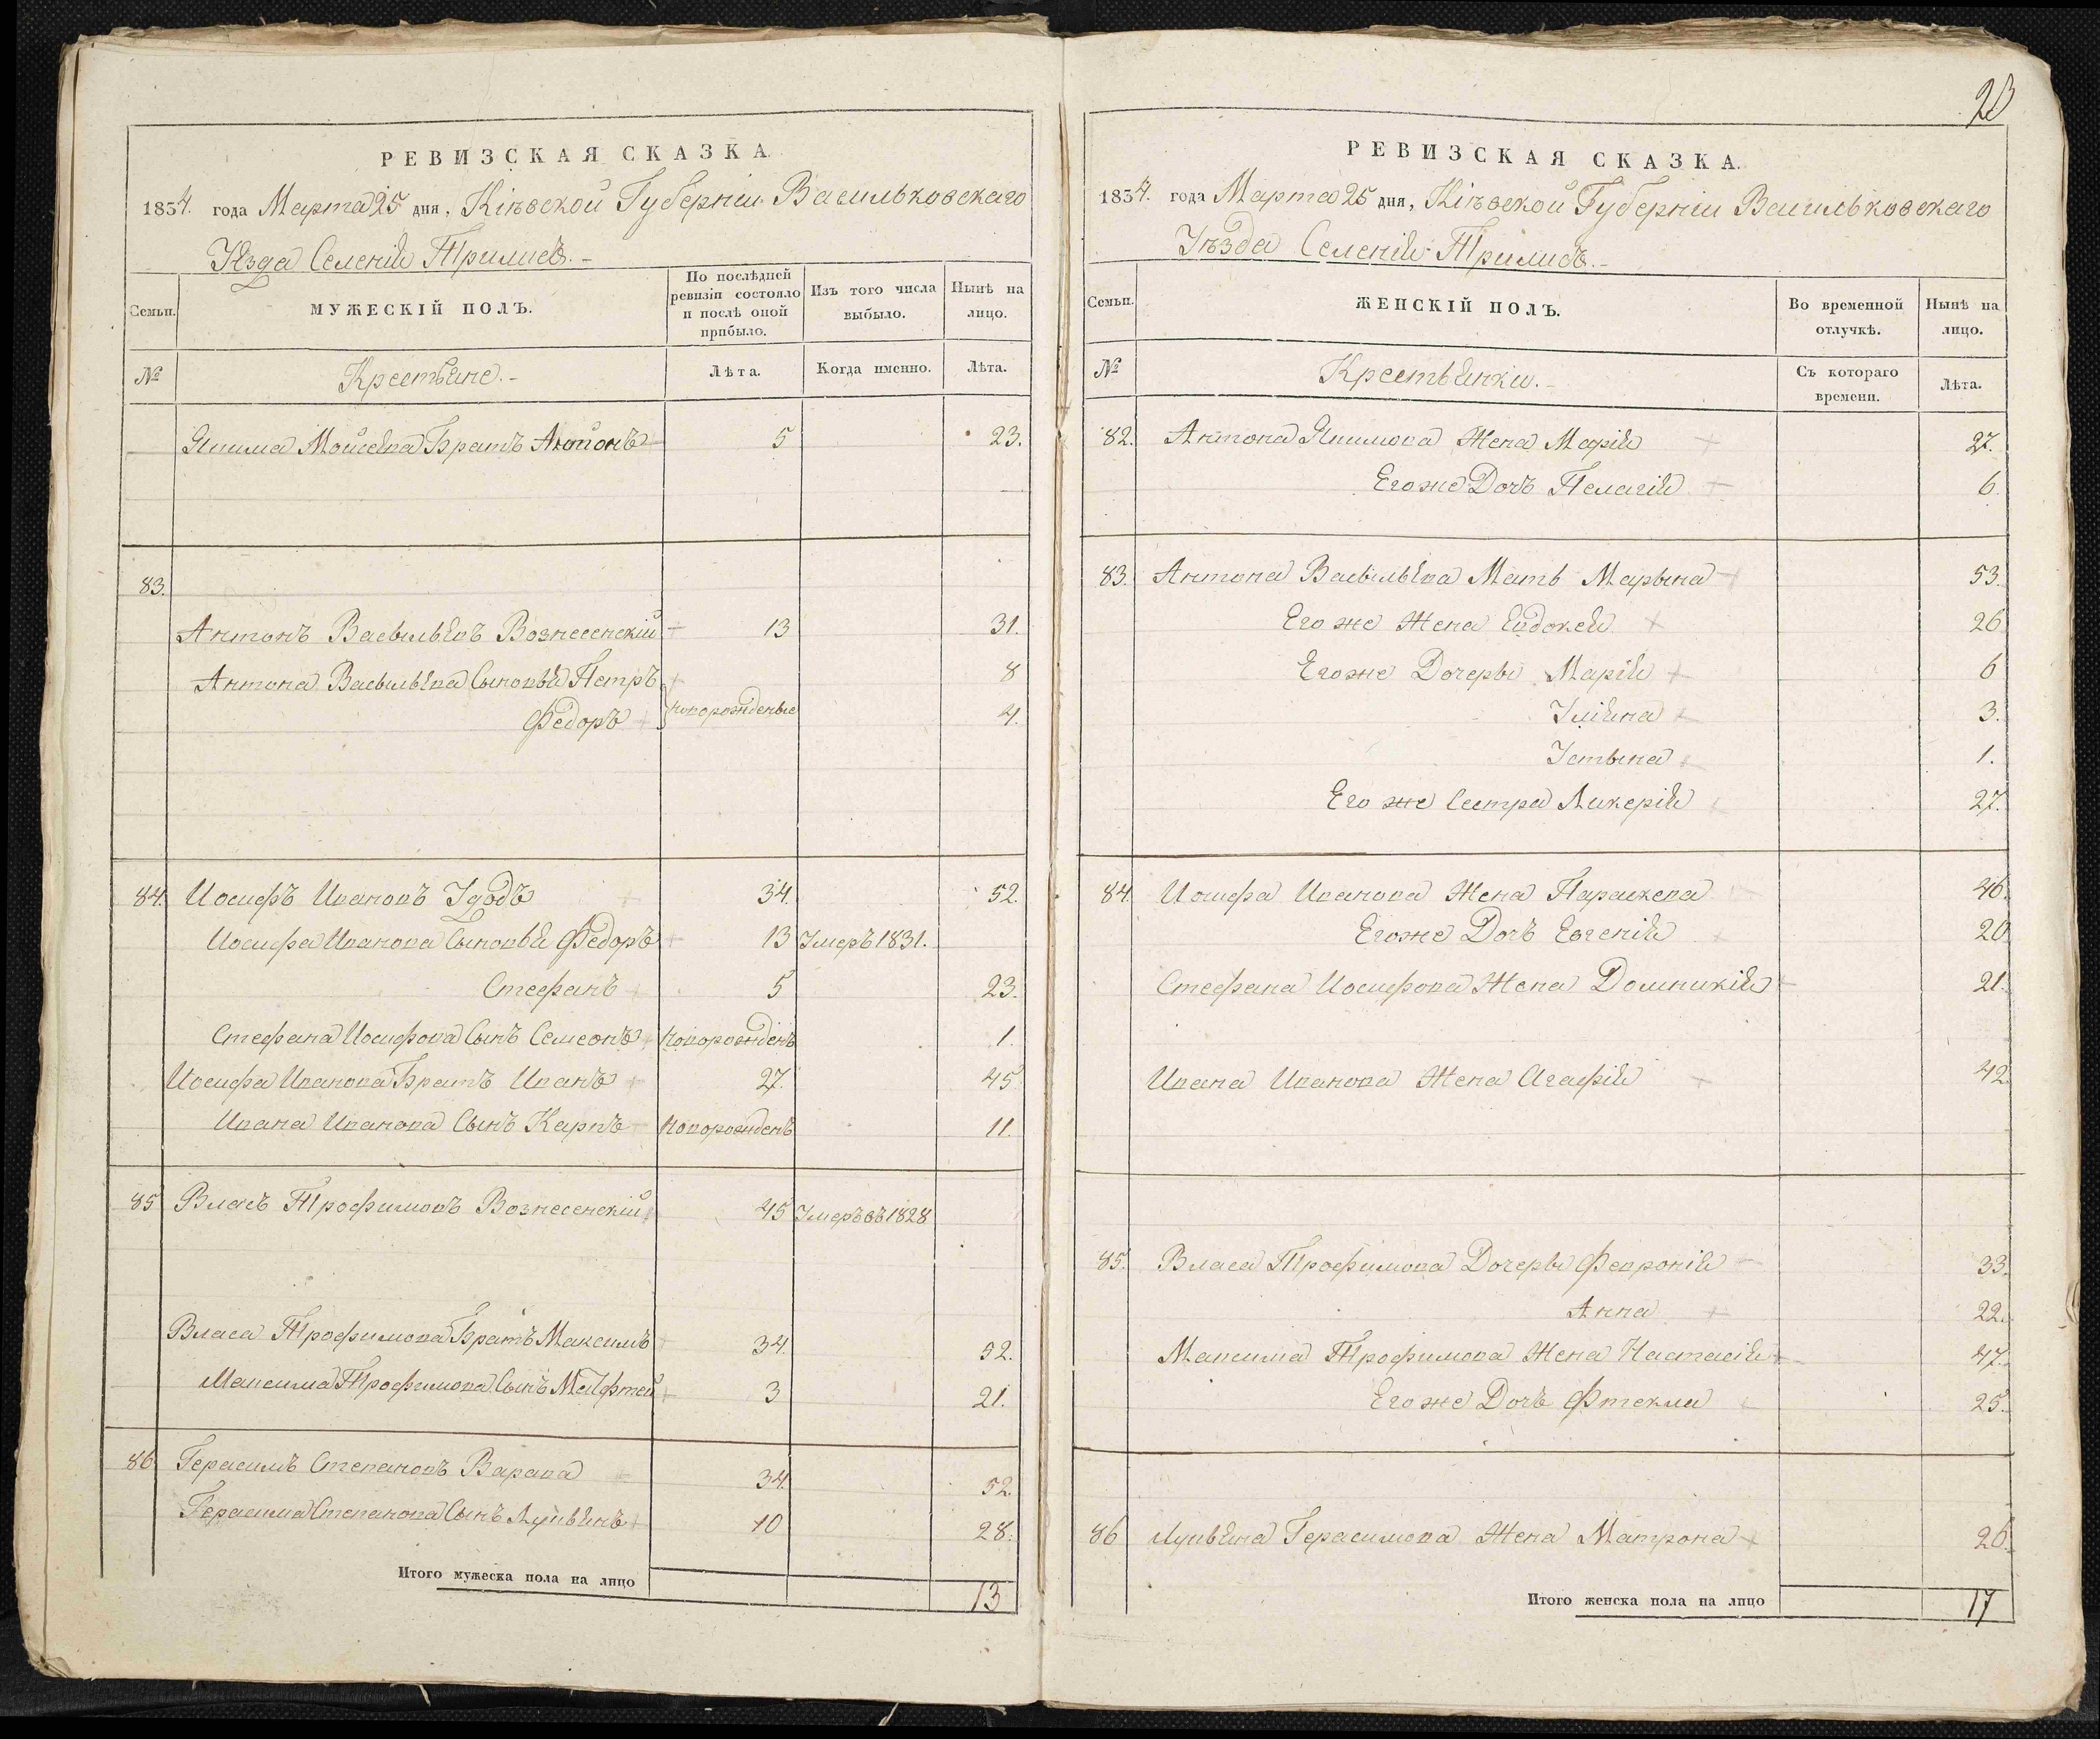 РЕВИЗСКАЯ СКАЗКА.
1834. года Марта 25 дня, Кіевской Губерніи Васильковскаго
Уѣзда Селенія Трилисъ.-
Семьи. МУЖЕСКІЙ ПОЛЪ. По послѣдней ревизіи состояло и послѣ оной прибыло. Изъ того числа выбыло. Нынѣ на лицо.
№ Крестьяне.- Лѣта. Когда именно. Лѣта.
Якима Моисеева Братъ Антонъ 5 23.
83.
Антонъ Васильевъ Вознесенскій 13 31.
Антона Васильева Сыновья Петръ 8
Федоръ новорожденые 4.
84. Иосифъ Ивановъ Удодъ 34. 52.
Иосифа Иванова Сыновья Федоръ 13 Умеръ 1831.
Стефанъ 5 23.
Стефана Иосифова Сынъ Семеонъ новорожденъ 1.
Иосифа Иванова Братъ Иванъ 27. 45
Ивана Иванова Сынъ Карпъ новорожденъ 11.
85 Власъ Трофимовъ Вознесенскій 45 Умеръ въ 1828
Власа Трофимова Братъ Максимъ 34. 52.
Максима Трофимова Сынъ 3 21.
86 Герасимъ Степановъ Варава 34. 52.
Герасима Степанова Сынъ Лукьянъ 10 28.
Итого мужеска пола на лицо 13
20
РЕВИЗСКАЯ СКАЗКА.
1834. года Марта 25 дня, Кіевской Губерніи Васильковскаго
Уѣзда Селенія Трилисъ.-
Семьи. ЖЕНСКІЙ ПОЛЪ. Во временной отлучкѣ. Нынѣ на лицо.
№ Крестьянки.- Съ котораго времени. Лѣта.
82. Антона Якимова Жена Марія 27.
Его же Дочъ Пелагія 6.
83. Антона Васильева Мать Марына 53.
Его же Жена Евдокея 26
Его же Дочеры Марія 6
Уліяна 3.
Устына 1.
Его же Сестра Ликерія 27.
84. Иосифа Иванова Жена Параскева 46.
Его же Дочъ Евгенія 20
Стефана Иосифова Жена Домникія 21.
Ивана Иванова Жена Агафія 42
85. Власа Трофимова Дочеры Февронія 33.
Анна 22.
Максима Трофимова Жена Настасія 47.
Его же Дочъ Фтекли 25.
86 Лукьяна Герасимова Жена Матрона 26.
Итого женска пола на лицо 17